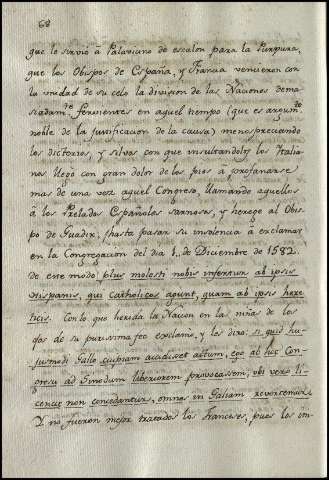 68
que le sirvió à Palavicino de escalon para la Purpura,
que los Obispos de España, y Francia vencieron con
la unidad de su celo la division de las Naciones dema-
siadam.te fervientes en aquel tiempo (que es argum.to
noble de la justificacion de la causa) menospreciando
los dicterios, y silvos con que insultandoles los Italia-
nos llegó con gran dolor de los pios à profanarse
mas de una vez aquel Congreso, llamando aquellos
à los Prelados Españoles sarnosos, y herege al Obis-
po de Guadix, hasta pasar su insolencia à exclamar
en la Congregacion del dia 1. de Diciembre de 1582.
de este modo plus molesti nobis inferuntur ab ipsis
Hispanis, qui Catholicos agunt, quam ab ipsis haere-
ticis. Con lo que herida la Nacion en la niña de los
ojos de su purissima feé exclamó, y les dixo: si quid hu-
jusmodi Gallo cuipiam accidisset actum, ego ab hoc Con-
gresu ad Sinodum liberiorem provocassem, ubi vero li-
centiae non concedantur, omnes in Galiam revertemur.
Y no fueron mejor tratados los Franceses, pues los im-